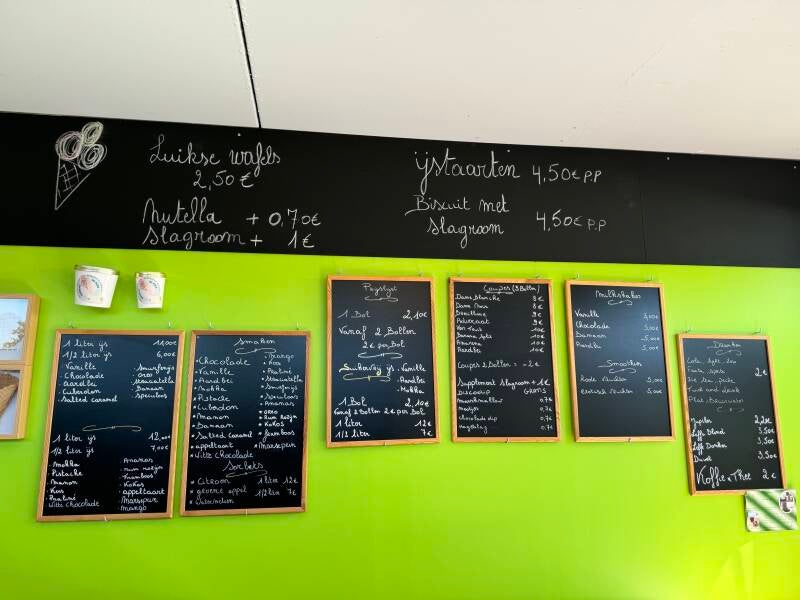 Luikse wafels
2,50 €
Nutella + 0,70€
Slagroom + 1€
ijstaarten 4,50€ p.p
Biscuit met
slagroom 4,50€ p.p
1 liter ijs 11,00€
1/2 liter ijs 6,00€
Vanille
Chocolade
Aardbei
Cuberdon
Salted caramel
Smurfenijs
Oreo
Straciatella
Banaan
Speculoos
1 liter ijs 12,00€
1/2 liter ijs 7,00€
Mokka
Pistache
Manon
Kers
Praliné
Witte Chocolade
Ananas
Rum rozijn
Framboos
Kokos
appeltaart
Marsepein
Mango
Smaken
Chocolade
Vanille
Aardbei
Mokka
Pistache
Cuberdon
Manon
Banaan
Salted Caramel
appeltaart
Witte Chocolade
Mango
Praliné
Straciatella
Smurfenijs
Speculoos
Ananas
Oreo
Rum Rozijn
Kokos
Framboos
Marsepein
Sorbets
Citroen 1 liter 12€
groene appel 1/2 liter 7€
Prijslijst
1 Bol 2,10€
Vanaf 2 Bollen
2€ per Bol
Suikervrij ijs Vanille
Aardbei
Mokka
1 Bol 2,10€
Vanaf 2 Bollen 2€ per Bol
1 liter 12€
1/2 liter 7€
Coupes (3 Bollen)
Dame Blanche 8€
Dame Noir 8€
Bresilienne 9€
Advocaat 9€
Banana Split 10€
Ananas 10€
Aardbei 10€
Coupes 2 Bollen = -2€
Supplement Slagroom + 1€
Discodip GRATIS
Marshmallow 0,7€
Nootjes 0,7€
chocolade dip 0,7€
hagelslag 0,7€
Milkshakes
Vanille 5,00€
Chocolade 5,00€
Banaan 5,00€
Aardbei 5,00€
Smoothies
Rode vruchten 5,00€
exotisch vruchten 5,00€
Dranken
2€
Jupiler
Leffe Blond 3,50€
Leffe Donker 3,50€
Duvel 3,50€
Koffie & Thee 2€